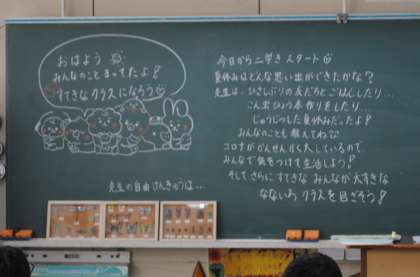 おはよう
みんなのことまってたよ!
すてきなクラスになろう
先生の自由けんきゅうは…
今日から二学きスタート
夏休みはどんな思い出ができたかな?
先生は、ひさしぶりの友だちとごはんしたり…
こん虫ひょう本作りをしたり…
じゅうじつした夏休みだったよ!
みんなのことも教えてね
コロナがかんせんかく大しているので、
みんなで気をつけて生活しよう!
そしてさらにすてきなみんなが大すきな
なないろクラスを目ざそう!